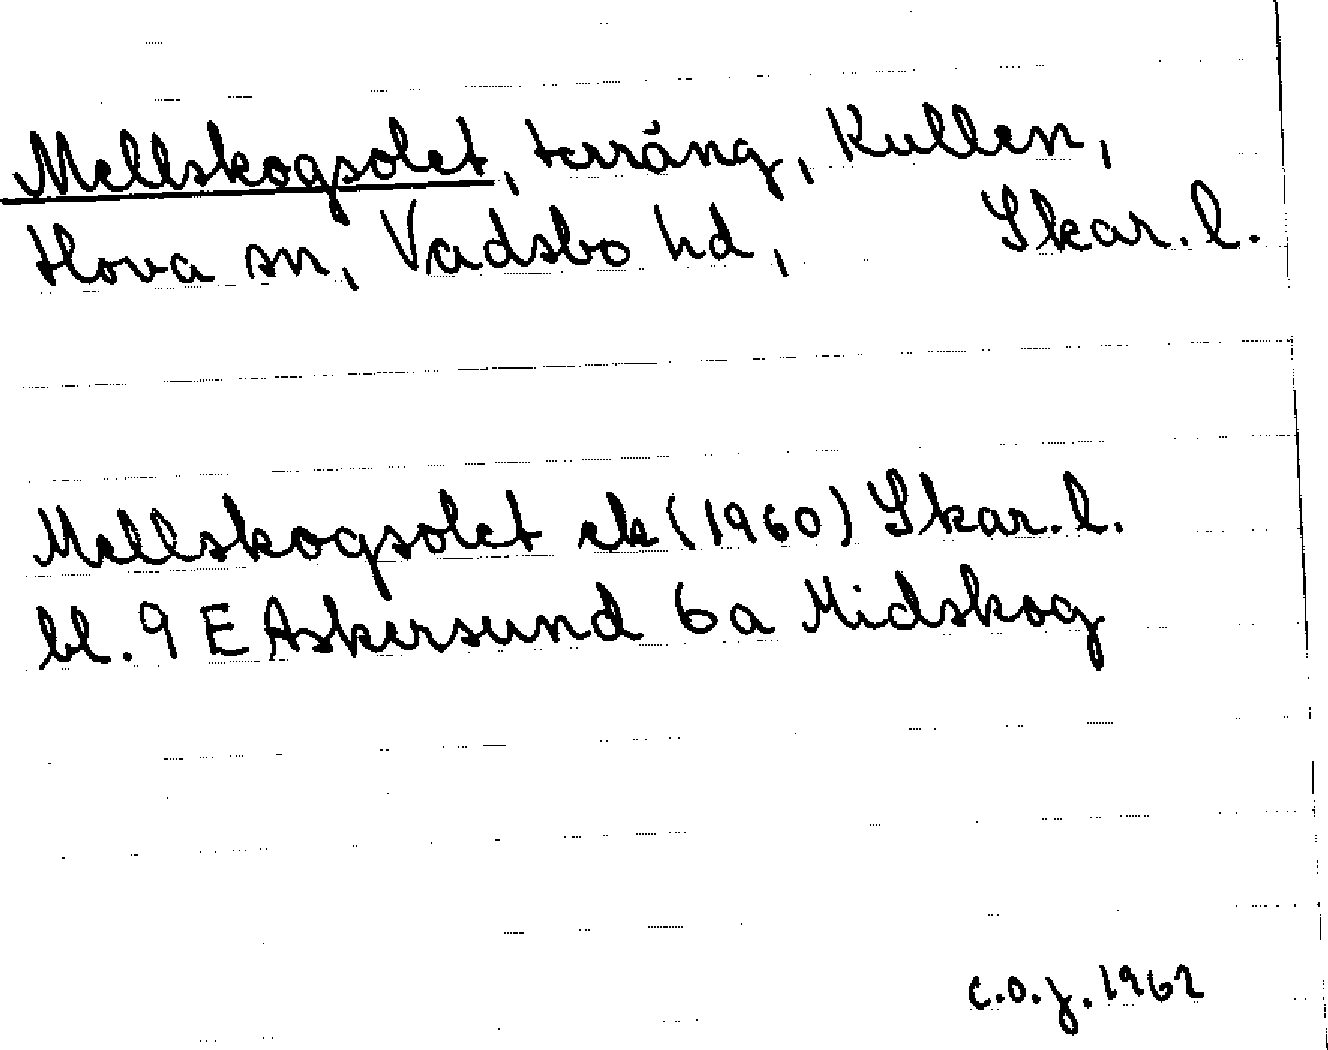 Mellskogsolet, terräng, Kullen,
Hova sn, Vadsbo hd, Skar. l.
Mellskogsolet ek (1960) Skar. l.
bl. 9 E Askersund 6a Midskog
C.O.J. 1962